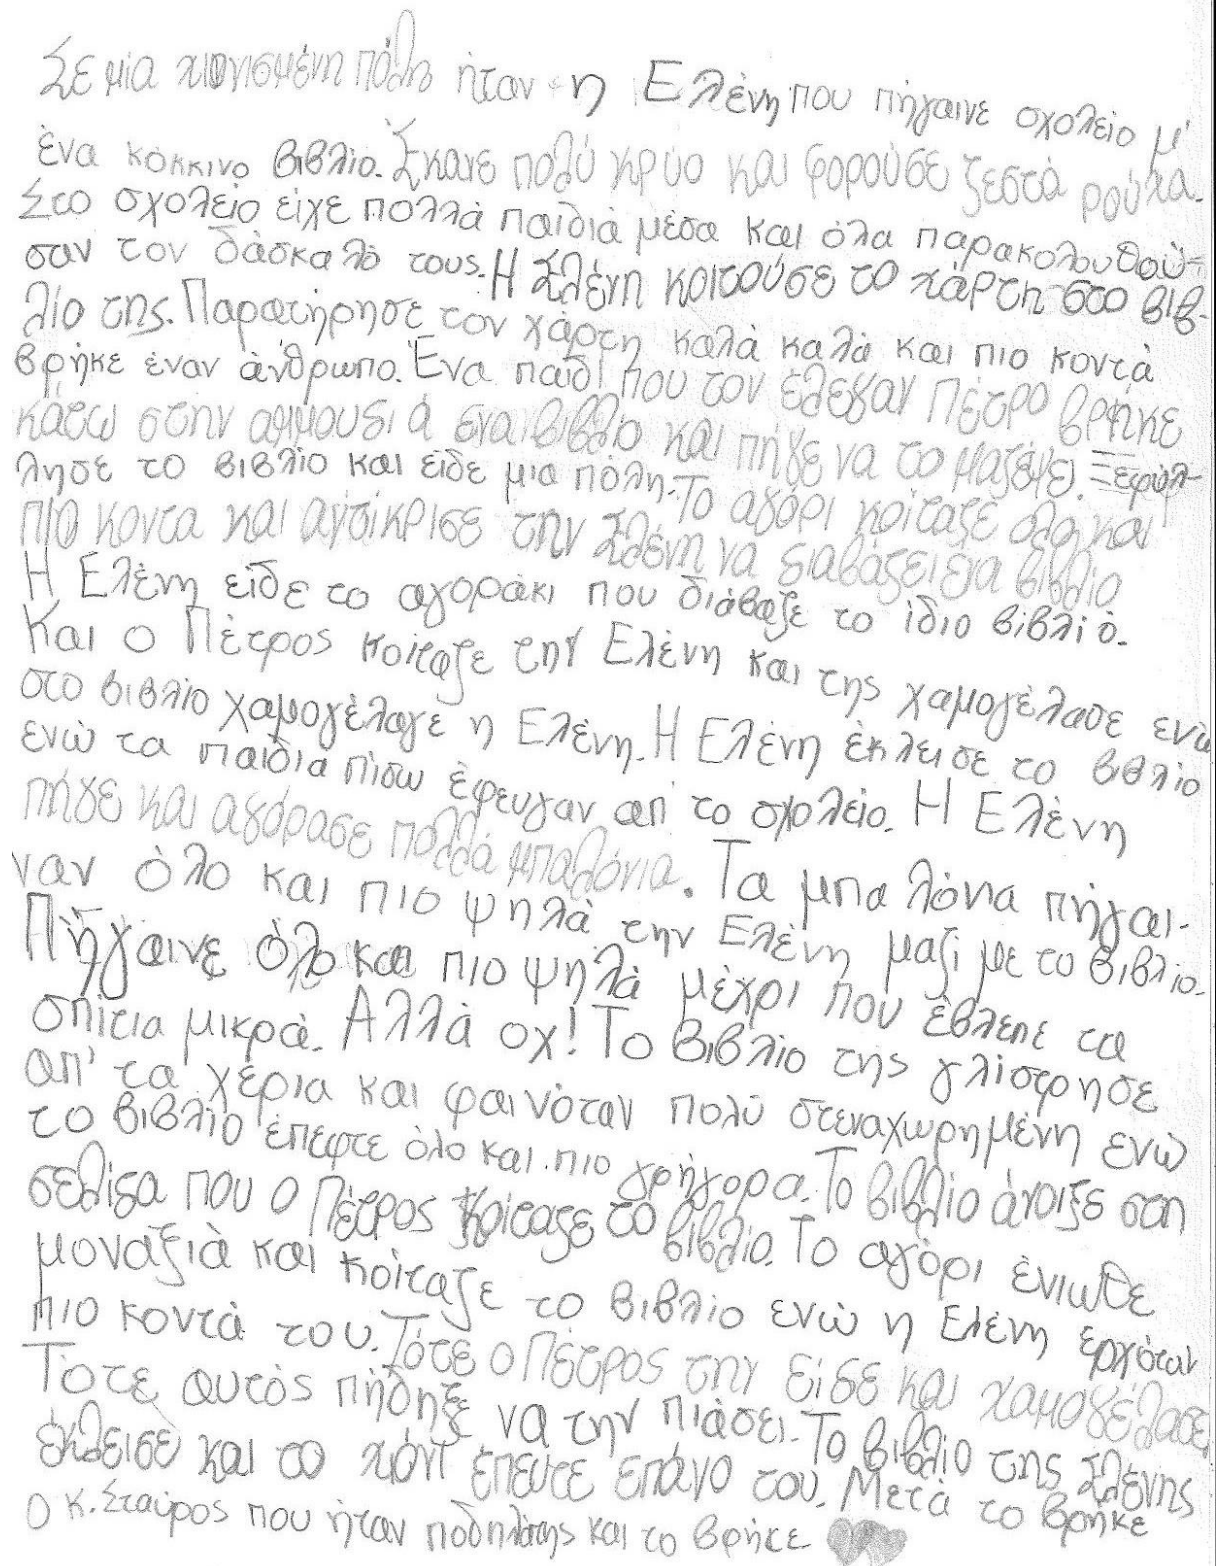 Σε μία χιονισμένη πόλη ήταν η Ελένη που πήγαινε σχολείο μ'
ένα κόκκινο βιβλίο. Έκανε πολύ κρύο και φορούσε ζεστά ρούχα.
Στο σχολείο είχε πολλά παιδιά μέσα και όλα παρακολουθού-
σαν τον δάσκαλό τους. Η Ελένη κοιτούσε το χάρτη στο βιβ-
λίο της. Παρατήρησε τον χάρτη καλά καλά και πιο κοντά
βρήκε έναν άνθρωπο. Ένα παιδί που τον έλεγαν Πέτρο βρήκε
κάτω στην αμμουδιά ένα βιβλίο και πήγε να το μαζέψει. Ξεφύλ-
λησε το βιβλίο και είδε μια πόλη. Το αγόρι κοίταξε όλο και
πιο κοντα και αντίκρισε την Ελένη να διαβάζει ένα βιβλίο
Η Ελένη είδε το αγοράκι που διάβαζε το ίδιο βιβλίό.
Και ο Πέτρος κοίταζε την Ελένη και της χαμογέλασε ενώ
στο βιβλίο χαμογέλαγε η Ελένη. Η Ελένη έκλεισε το βιβλίο
ενώ τα παιδία πίσω έφευγαν απ' το σχολείο. Η Ελένη
πήγε και αγόρασε πολλά μπαλόνια. Τα μπαλόνια πήγαι-
ναν όλο και πιο ψηλά την Ελένη μαζί με το βιβλίο.
Πήγαινε όλο και πιο ψηλά μέχρι που έβλεπε τα
σπίτια μικρά. Αλλά οχ! Το βιβλίο της γλίστρησε
απ' τα χέρια και φαινόταν πολύ στεναχωρημένη ενώ
το βιβλίο έπεφτε όλο και πιο γρήγορα. Το βιβλίο άνοιξε στη
σελίδα που ο Πέτρος κοίταζε το βιβλίο. Το αγόρι ένιωθε
μοναξιά και κοίταζε το βιβλίο ενώ η Ελένη ερχόταν
πιο κοντά του. Τότε ο Πέτρος την είδε και χαμογέλασε
Τότε αυτός πήδηξε να την πιάσει. Το βιβλίο της Ελένης
έκλεισε και το χιόνι έπεφτε επάνο του. Μετά το βρήκε
ο κ. Σταύρος που ήταν ποδηλάτης και το βρήκε